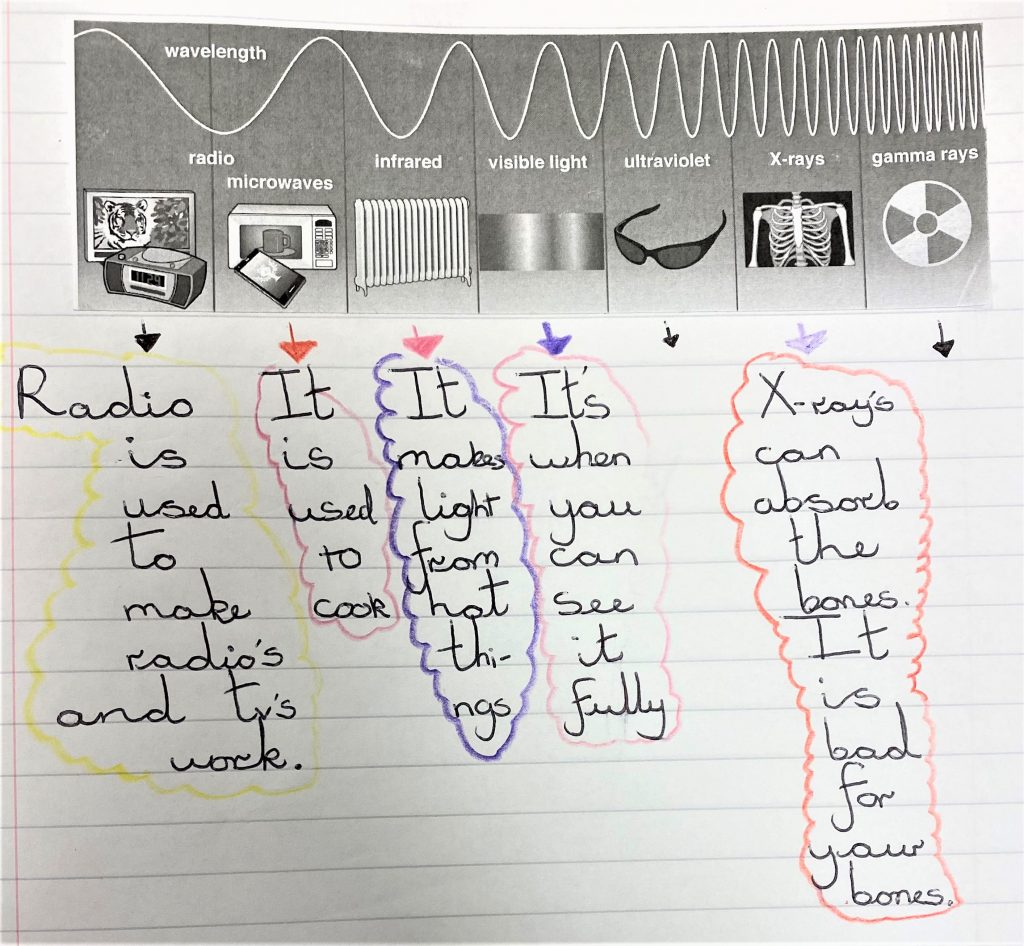 wavelength
radio
microwaves
infrared
visible light
ultraviolet
X-rays
gamma rays
Radio
is
used
to
make
radio's
and tv's
work.
It
is
used
to
cook
It
makes
light
from
hot
thi-
ngs
It's
when
you
can
see
it
fully
X-ray's
can
absorb
the
bones.
It
is
bad
for
your
bones.